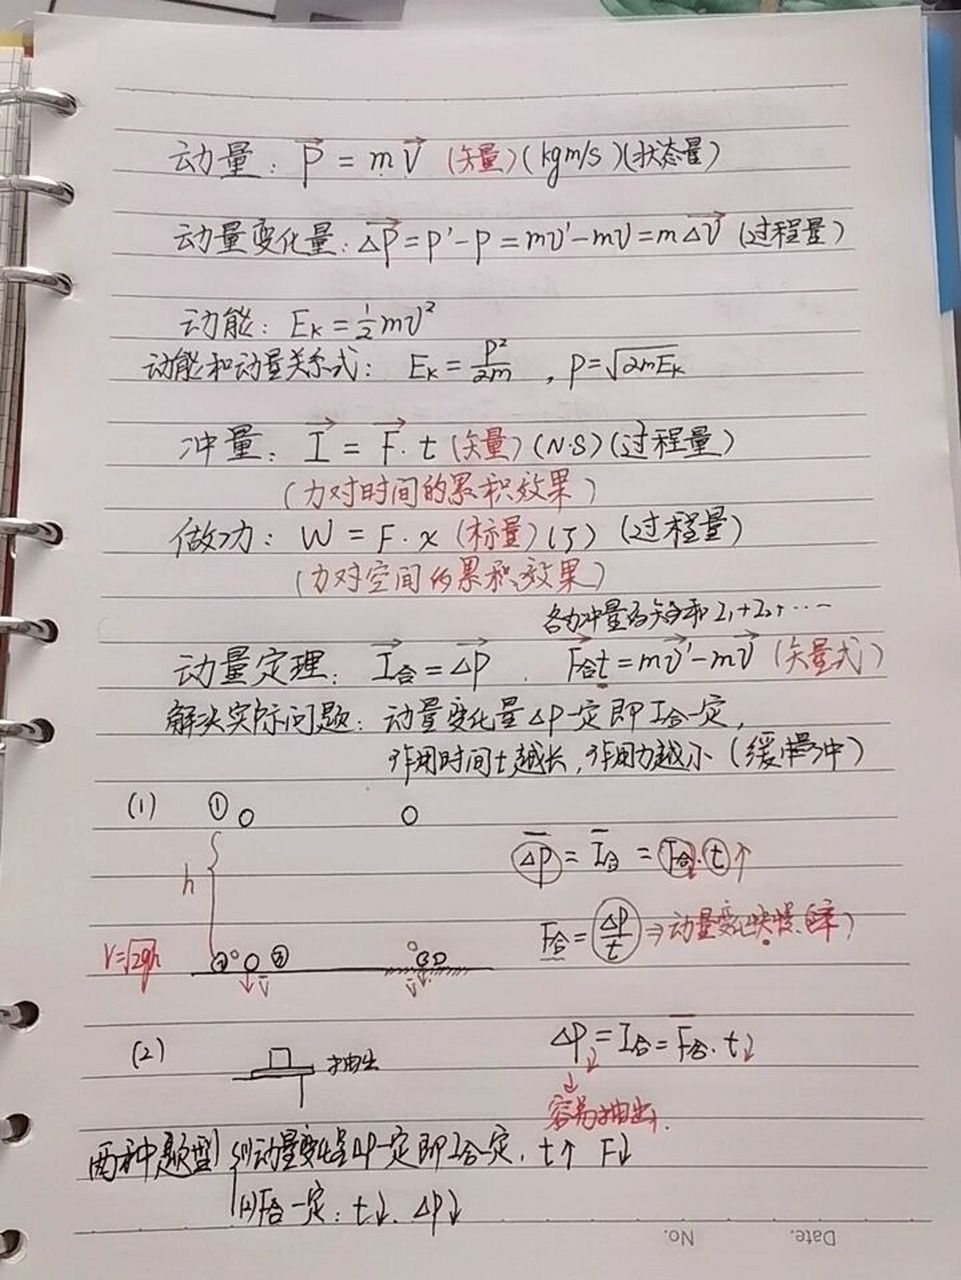 动量: P = mV (矢量)(kgm/s)(状态量)
动量变化量: ΔP=P'-P=mv'-mv=mΔV (过程量)
动能: Eₖ=½mv²
动能和动量关系式: Eₖ=P²/2m , P=√2mEₖ
冲量: I = F·t (矢量)(N·S)(过程量)
(力对时间的累积效果)
做功: W = F·x (标量)(J) (过程量)
(力对空间的累积效果)
各力冲量的矢量和 I₁+I₂+…
动量定理: I合=ΔP . F合t=mv'-mv (矢量式)
解决实际问题: 动量变化量ΔP一定即I合一定,
作用时间t越长,作用力越小 (缓慢冲)
(1) ①
h
ΔP = I合 = F合·t↑
F合=ΔP/t ⇒动量变化快慢(率)
V=√2gh ② ③ V V
(2) 抽出
ΔP↓=I合=F合·t↓
容易抽出.
两种题型 (1)动量变化量ΔP一定即I合一定, t↑ F↓
(2)F合一定: t↓. ΔP↓
No.
Date.